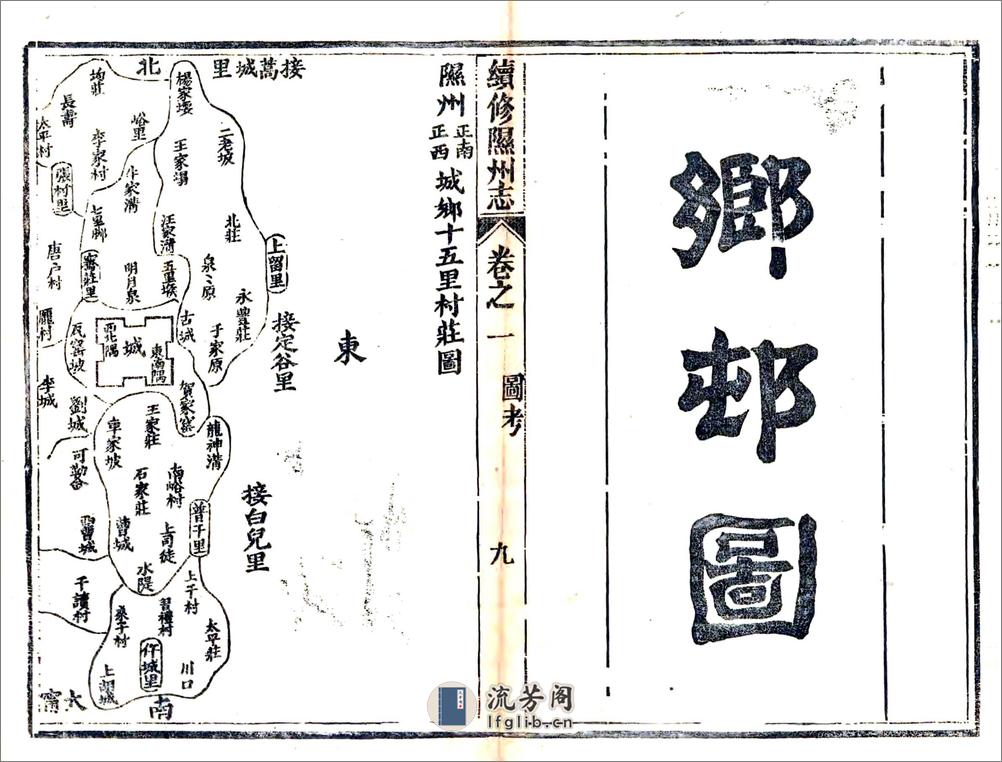 鄉邨圖
續修隰州志
卷之一
圖考
九
隰州正南正西城鄉十五里村莊圖
接蒿城里
北
東
接定谷里
接白兒里
上留里
楊家堎
二老坡
王家溝
北莊
汪家溝
泉〻原
永豐莊
于家原
五里堠
古城
賀家窑
龍神溝
均莊
長壽
峪里
太平村
李家村
牛家溝
張村里
七里脚
唐戶村
窑莊里
明月泉
瓦窑坡
西北隅
城
東南隅
李城
劉城
王家莊
車家坡
石家莊
南峪村
普干里
上司徒
曹城
水隄
上干村
習禮村
桑干村
太平莊
仵城里
川口
千讀村
南
大甯